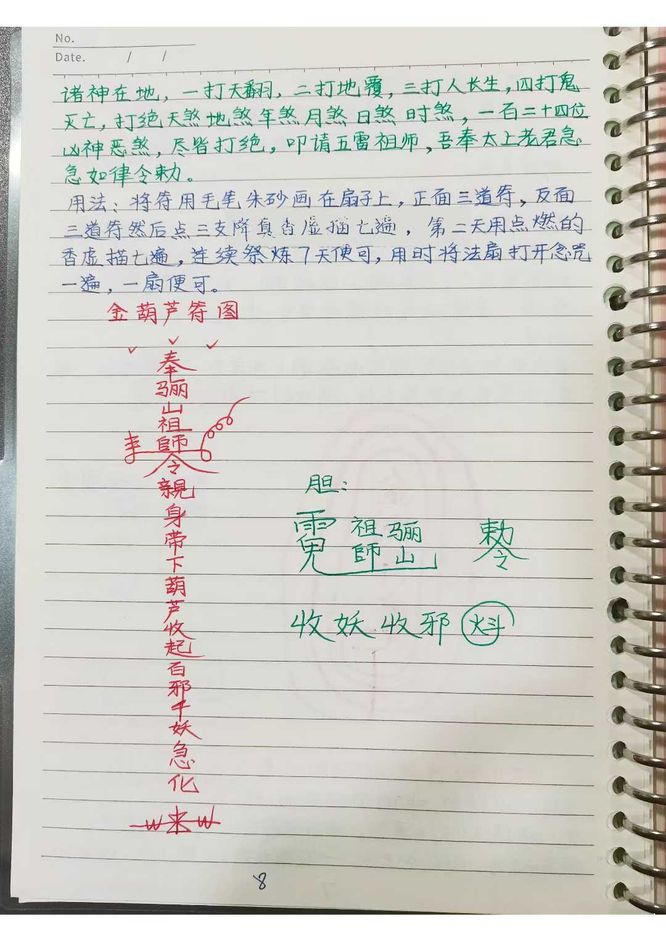 No.
Date. / /
诸神在地，一打天翻，二打地覆，三打人长生，四打鬼
灭亡，打绝天煞地煞年煞月煞日煞时煞，一百二十四位
凶神恶煞，尽皆打绝，叩请五雷祖师，吾奉太上老君急
急如律令敕。
用法：将符用毛笔朱砂画在扇子上，正面三道符，反面
三道符然后点三支降真香虚描七遍，第二天用点燃的
香虚描七遍，连续祭炼7天便可，用时将法扇打开念咒
一遍，一扇便可。
金葫芦符图
奉
骊
山
祖
師
令
親
身
带
下
葫
芦
收
起
百
邪
千
妖
急
化
胆：
祖骊
師山
敕令
收妖收邪
8